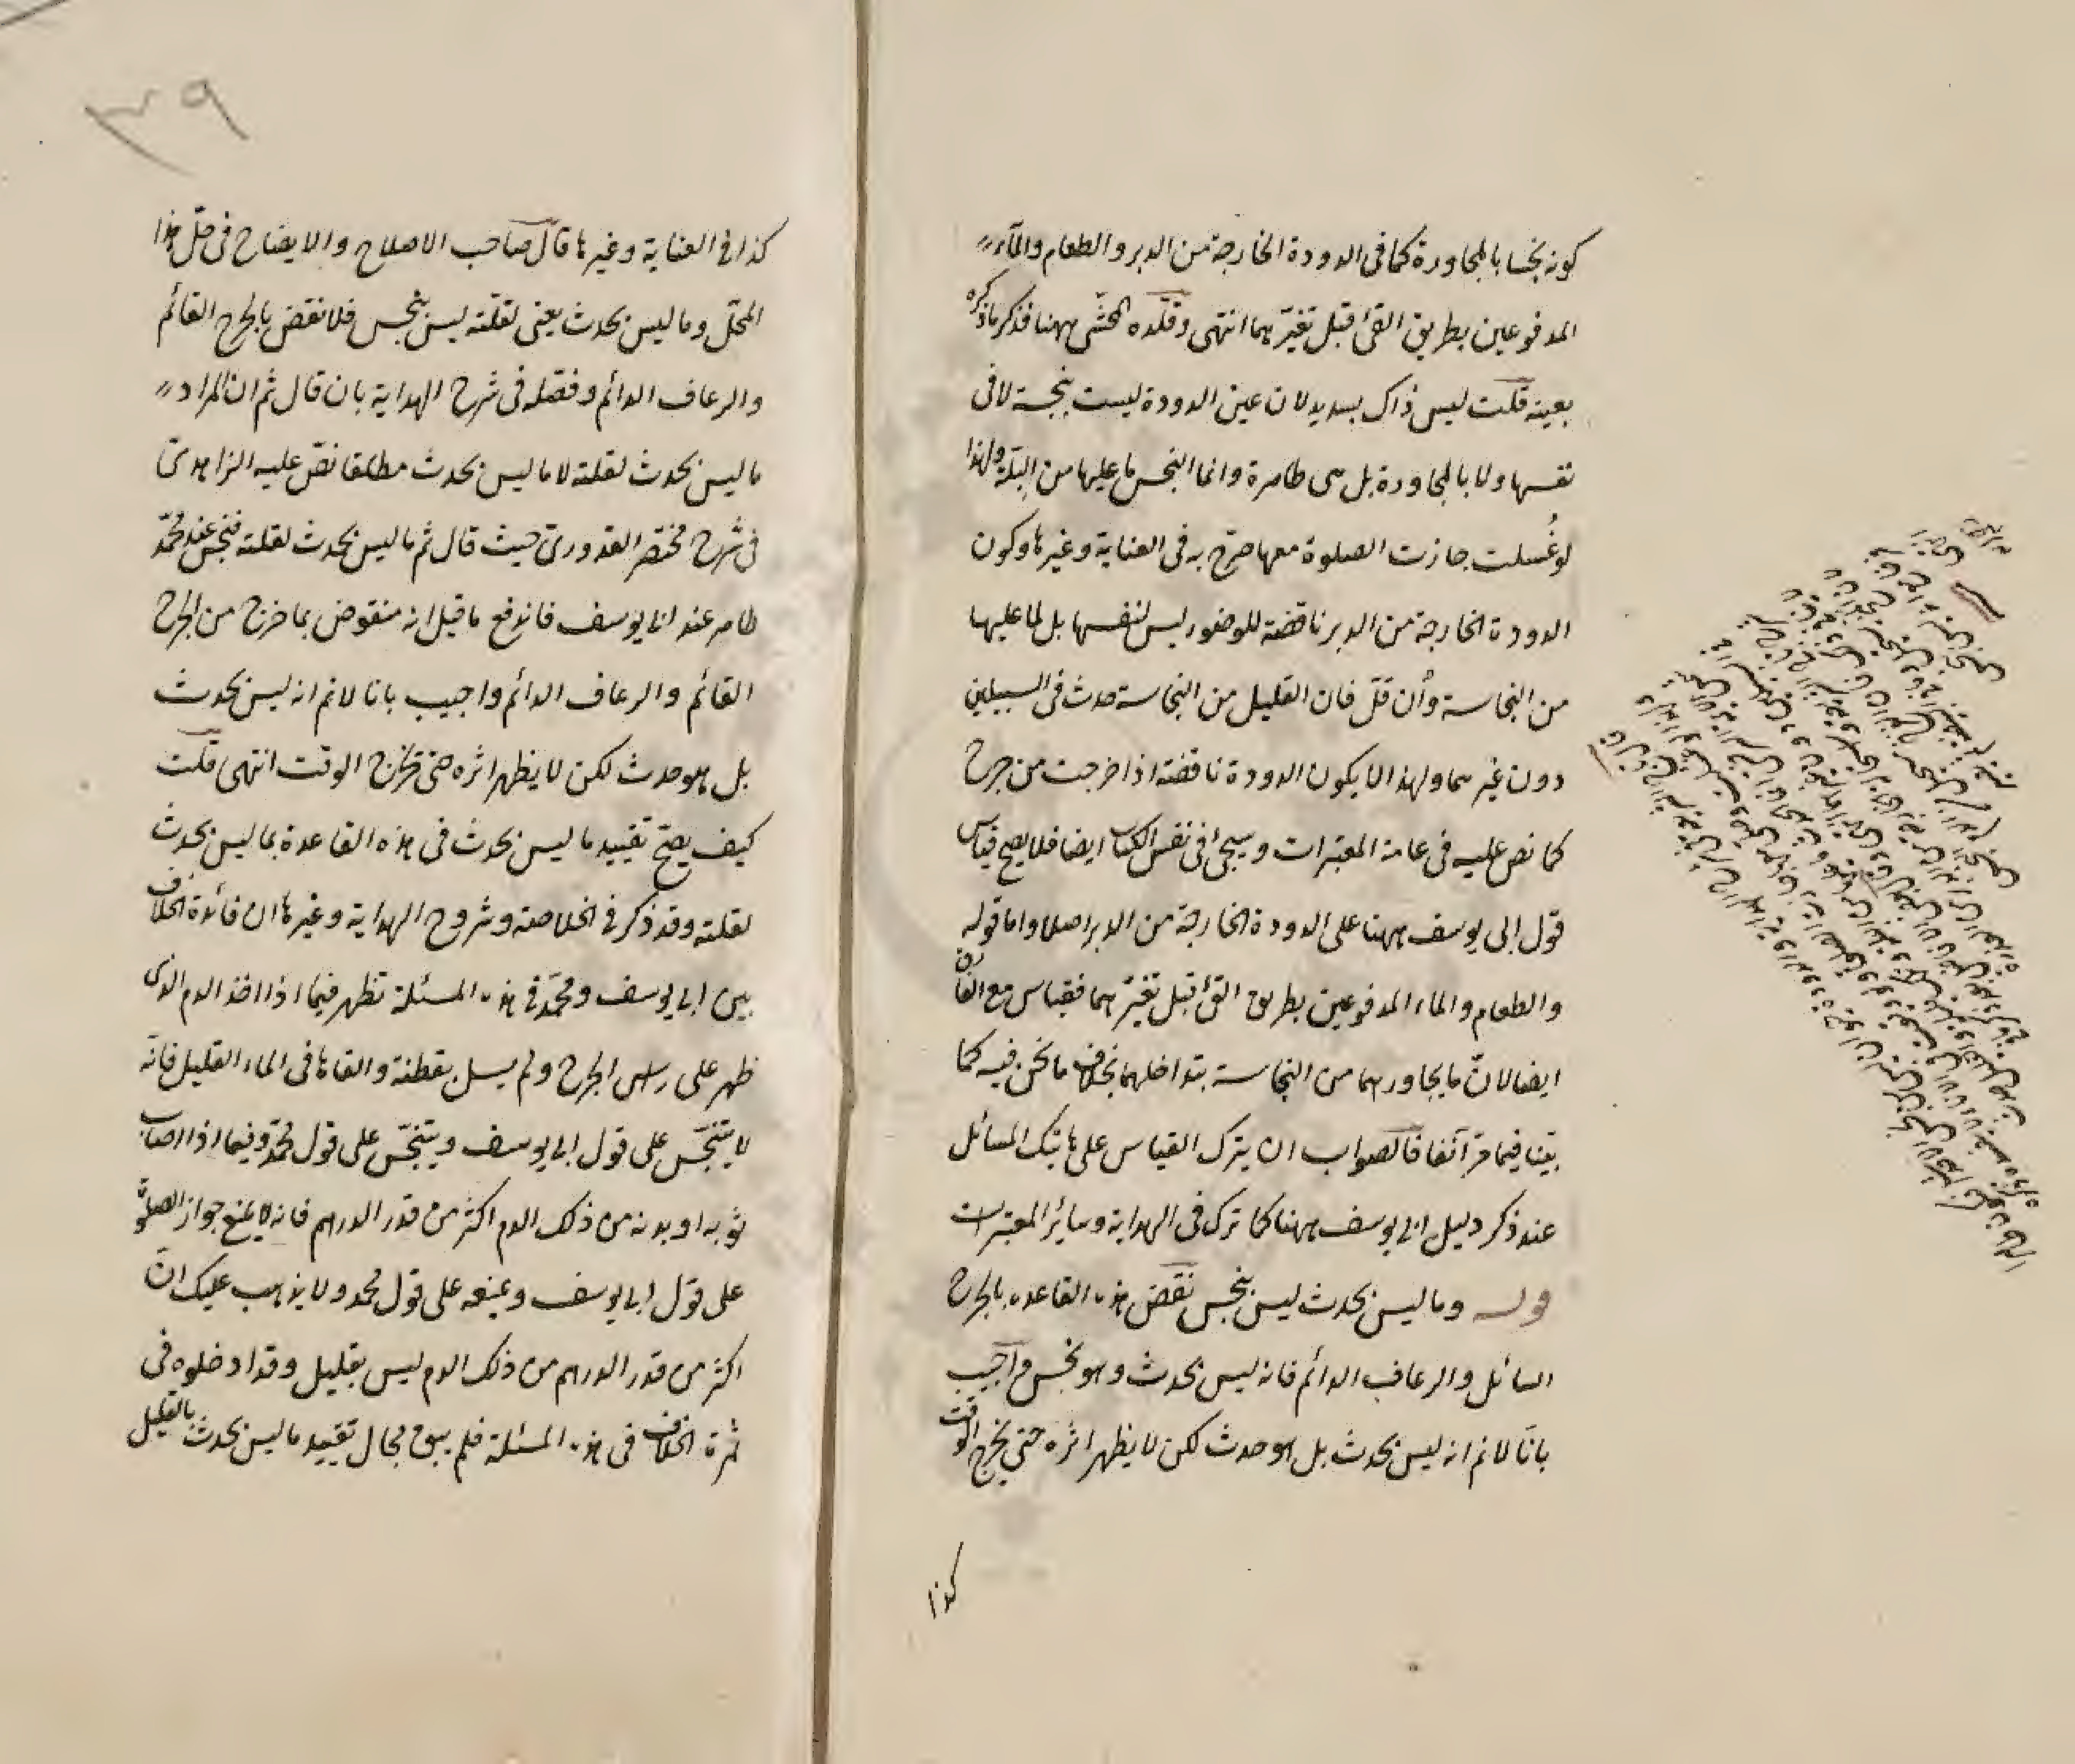 كونه نجسا بالمجاورة كما فى الدودة الخارجة من الدبر والطعام والمآء
المدفوعين بطريق القئ قبل تغيّرهما انتهى وقلّده المحشّى ههنا فذكر ماذكره
بعينه قلت ليس ذاك بسديد لان عين الدودة ليست بنجسة لا فى
نفسها ولا بالمجاورة بل هى طاهرة وانما النجس ما عليها من البلّة ولهذا
لو غُسلت جازت الصلوة معها صرّح به فى العناية وغيرها وكون
الدودة الخارجة من الدبر ناقضة للوضوء ليس لنفسها بل لما عليها
من النجاسة وأن قلّ فان القليل من النجاسة حدث فى السبيلين
دون غيرهما ولهذا لا يكون الدودة ناقضة اذا خرجت من جرح
كما نص عليه فى عامة المعتبرات وسيجئ فى نفس الكتاب ايضا فلا يصح قياس
قول ابى يوسف ههنا على الدودة الخارجة من الدبر اصلا واما قوله
والطعام والماء المدفوعين بطريق القئ قبل تغيّرهما فقياس مع الفارق
ايضا لانّ ما يجاورهما من النجاسة بتداخلهما بخلاف ما نحن فيه كما
بيّنا فيما مرّ آنفا فالصواب ان يترك القياس على هاتيك المسائل
عند ذكر دليل ابى يوسف ههنا كما ترك فى الهداية وسائر المعتبرات
قوله وما ليس بحدث ليس بنجس نقض هذه القاعدة بالجرح
السائل والرعاف الدائم فانه ليس بحدث وهو نجس واجيب
بانّا لا نم انه ليس بحدث بل هو حدث لكن لا يظهر اثره حتى يخرج الوقت
كذا
٣٩
كذا فى العناية وغيرها قال صاحب الاصلاح والايضاح فى حلّ هذا
المحلّ وما ليس بحدث يعنى لقلّته ليس بنجس فلا نقض بالجرح القائم
والرعاف الدائم وفصّله فى شرح الهداية بان قال ثم ان المراد
ما ليس بحدث لقلته لا ما ليس بحدث مطلقا نصّ عليه الزاهدى
فى شرح مختصر القدورى حيث قال ثم ما ليس بحدث لقلته فنجس عند محمّد
طاهر عند ابى يوسف فاندفع ما قيل انه منقوض بما خرج من الجرح
القائم والرعاف الدائم واجيب بانا لا نم انه ليس بحدث
بل هو حدث لكن لا يظهر اثره حتى يخرج الوقت انتهى قلت
كيف يصحّ تقييد ما ليس بحدث فى هذه القاعدة بما ليس بحدث
لقلته وقد ذكر فى الخلاصة وشروح الهداية وغيرها ان فائدة الخلاف
بين ابى يوسف ومحمّد فى هذه المسئلة تظهر فيما اذا اخذ الدم الذى
ظهر على رأس الجرح ولم يسل بقطنة والقاها فى الماء القليل فانّه
لا يتنجّس على قول ابى يوسف ويتنجّس على قول محمّد وفيما اذا اصاب
ثوبه او بدنه من ذلك الدم اكثر من قدر الدرهم فانه لا يمنع جواز الصلوة
على قول ابى يوسف ويمنعه على قول محمد ولا يذهب عليك انّ
اكثر من قدر الدرهم من ذلك الدم ليس بقليل وقد ادخلوه فى
ثمرة الخلاف فى هذه المسئلة فلم يبق مجال تقييد ما ليس بحدث بالقليل